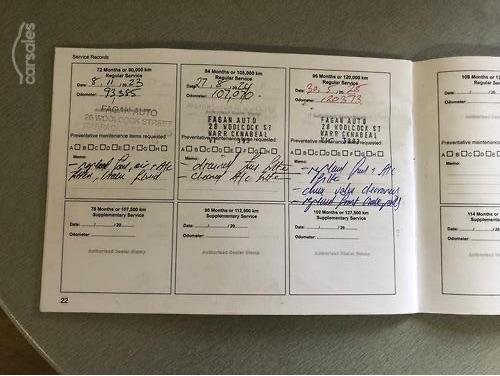 carsales
Service Records
72 Months or 90,000 km
Regular Service
Date: 8, 11 / 20 23
Odometer: 93385
FAGAN AUTO
28 WOOLCOCK STREET
Preventative maintenance items requested:
A B C D E F G H
Memo:
- replaced fuel, air, + A/c
filters, brake fluid
84 Months or 105,000 km
Regular Service
Date: 27, 8 / 20 24
Odometer: 107,070
FAGAN AUTO
28 WOOLCOCK ST
WARRACKNABEAL
Preventative maintenance items requested:
A B C D E F G H
Memo:
- drained fuel filter
- cleaned A/c filter
96 Months or 120,000 km
Regular Service
Date: 30, 5 / 20 25
Odometer: 120393
FAGAN AUTO
28 WOOLCOCK ST
WARRACKNABEAL
Preventative maintenance items requested:
A B C D E F G H
Memo:
- replaced fuel + A/c
filter
- check valve clearances
- replaced front brake pads
78 Months or 97,500 km
Supplementary Service
Date: / / 20
Odometer:
Authorised Dealer Stamp
90 Months or 112,500 km
Supplementary Service
Date: / / 20
Odometer:
Authorised Dealer Stamp
102 Months or 127,500 km
Supplementary Service
Date: / / 20
Odometer:
Authorised Dealer Stamp
108 Months or
Date:
Odometer:
Preventative
A B
Memo:
114 Months
Supplementary
Date:
Odometer:
22